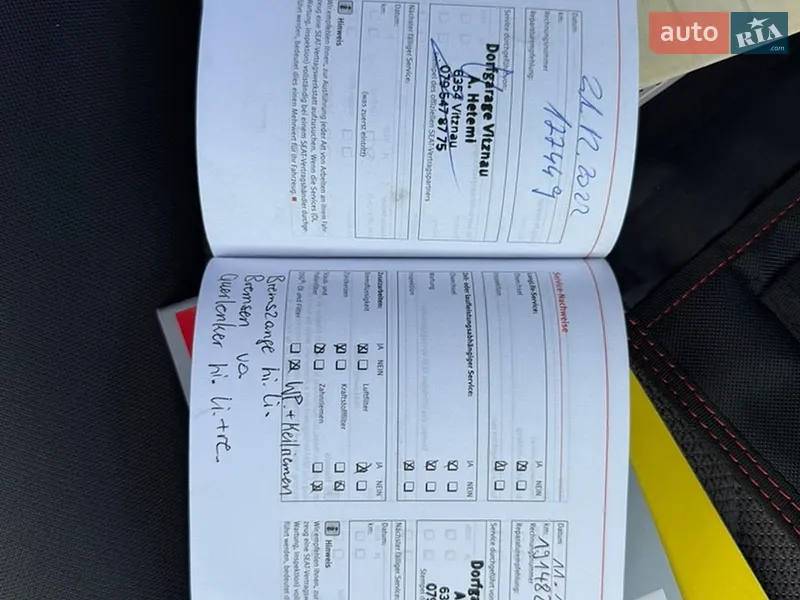 auto RIA
.com
Datum:
21.12.2022
km:
177449
Rechnungsnummer
Reparaturempfehlung:
Service durchgeführt von:
Dorfgarage Vitznau
A. Hetemi
6354 Vitznau
079 547 87 75
Stempel des offiziellen SEAT-Vertragspartners
Nächster fälliger Service:
Datum:
km:
(was zuerst eintritt)
Hinweis
Wir empfehlen Ihnen, zur Ausführung jeder Art von Arbeiten an Ihrem Fahr-
zeug eine SEAT-Vertragswerkstatt aufzusuchen. Wenn die Services (Öl,
Wartung, Inspektion) vollständig bei einem SEAT-Vertragshändler durchge-
führt werden, bedeutet dies einen Mehrwert für Ihr Fahrzeug.
Service-Nachweise
LongLife-Service: JA NEIN
Ölwechsel
Inspektion
Zeit- oder laufleistungsabhängiger Service: JA NEIN
Ölwechsel
Wartung
Inspektion
Zusatzarbeiten: JA NEIN JA NEIN
Bremsflüssigkeit Luftfilter
Zündkerzen Kraftstofffilter
Staub- und
Pollenfilter Zahnriemen
Öl und Filter WP. + Keilriemen
Bremszange hi. li.
Bremsen va
Querlenker hi. li. + re.
Datum
11.
km:
Rechnungsnummer
Reparaturempfehlung:
Service durchgeführt von
Dorfg
A.
63
079
Stempel de
Nächster fälliger Service:
Datum:
km:
Hinweis
Wir empfehlen Ihnen, zur
zeug eine SEAT-Vertrags
Wartung, Inspektion) voll
führt werden, bedeutet d